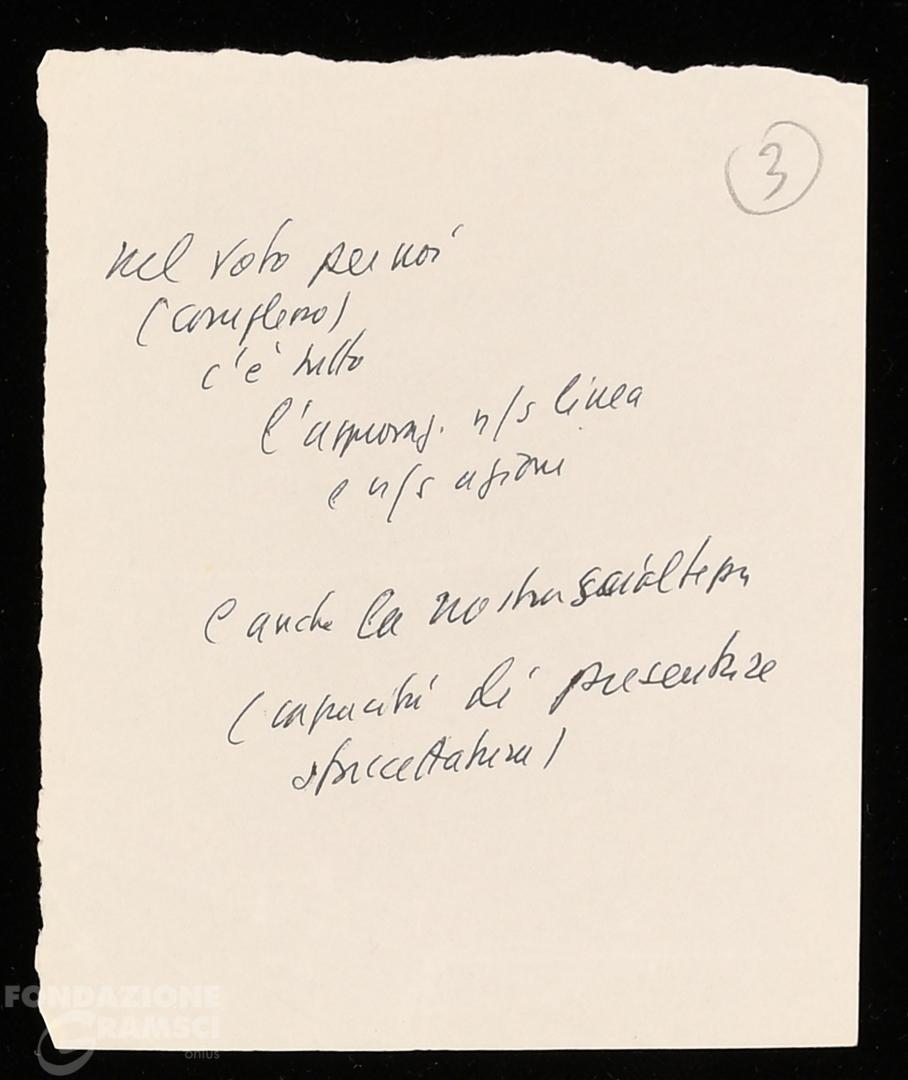 3
nel voto per noi
(complesso)
c'è tutto
l'approvaz. n/s linea
e n/s azione
e anche la nostra
(capacità di presentare
sfaccettatura)
FONDAZIONE
GRAMSCI
onlus